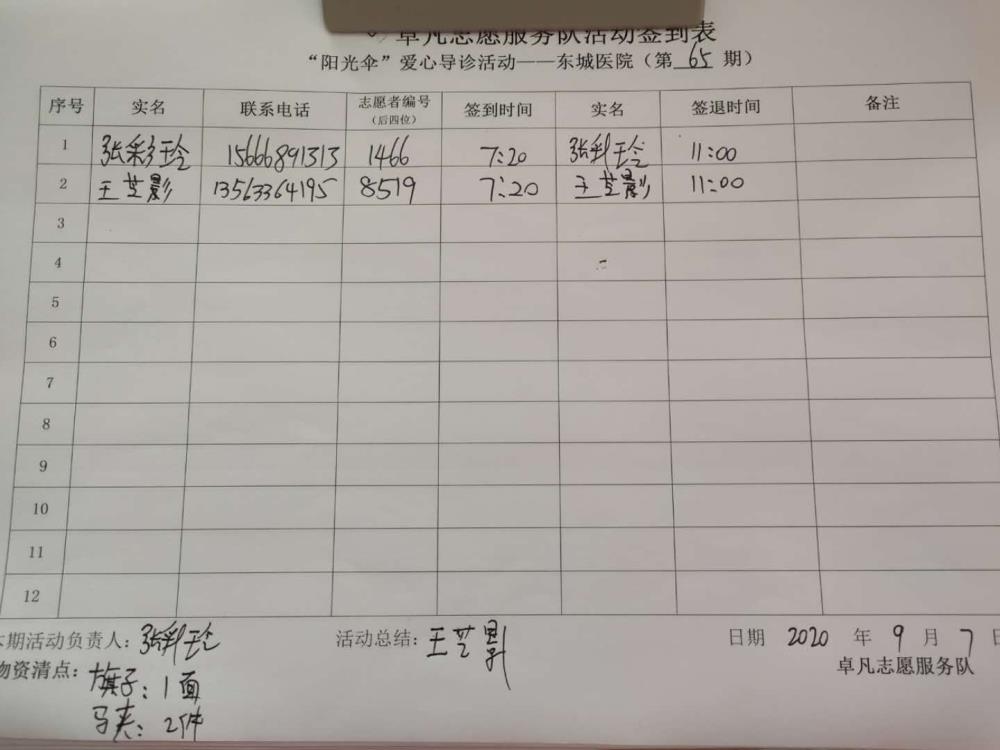 卓凡志愿服务队活动签到表
“阳光伞”爱心导诊活动——东城医院（第 65 期）
序号 实名 联系电话 志愿者编号（后四位） 签到时间 实名 签退时间 备注
1 张彩玲 15666891313 1466 7:20 张彩玲 11:00
2 王芝影 13563364195 8519 7:20 王芝影 11:00
3
4
5
6
7
8
9
10
11
12
本期活动负责人：张彩玲 活动总结：王芝影 日期 2020 年 9 月 7 日
物资清点：旗子：1面 卓凡志愿服务队
马夹：2件